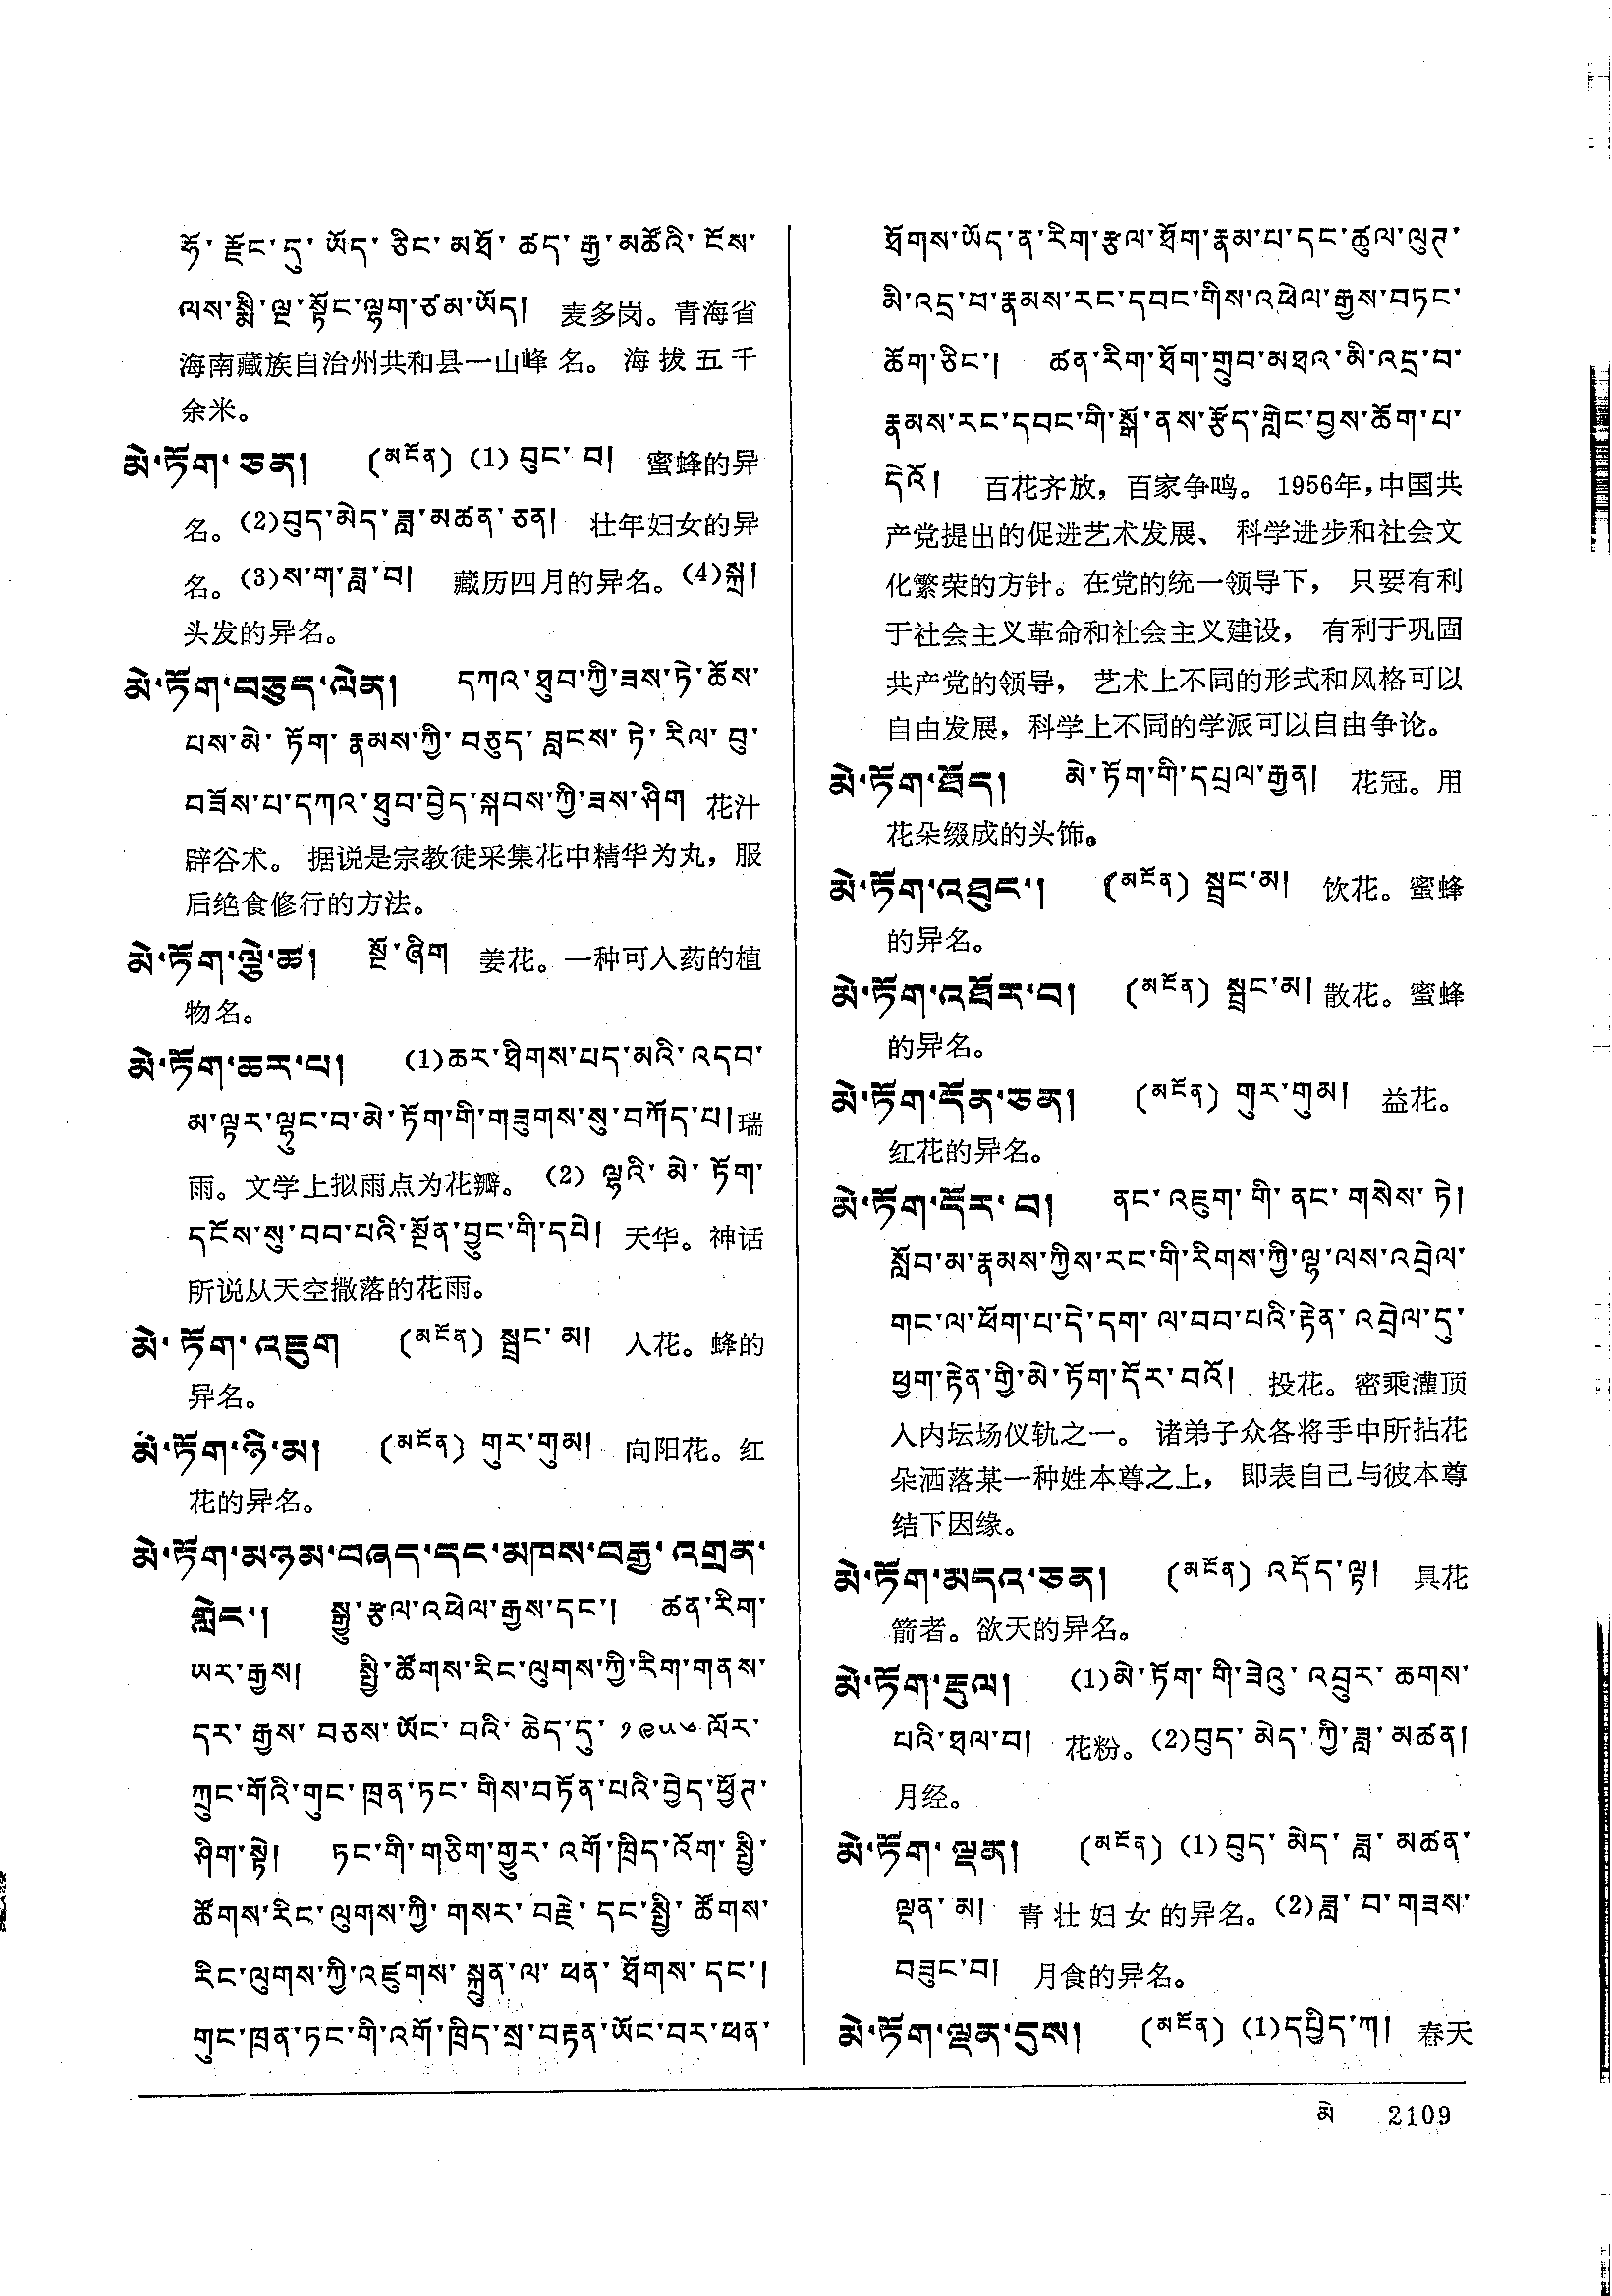 ཧོ་རྫོང་དུ་ཡོད་ཅིང་མཐོ་ཚད་རྒྱ་མཚོའི་ངོས་
ལས་སྨི་ལྔ་སྟོང་ལྷག་ཙམ་ཡོད། 麦多岗。青海省
海南藏族自治州共和县一山峰名。海拔五千
余米。
མེ་ཏོག་ཅན། (མངོན) (1) བུང་བ། 蜜蜂的异
名。(2)བུད་མེད་ཟླ་མཚན་ཅན། 壮年妇女的异
名。(3)ས་ག་ཟླ་བ། 藏历四月的异名。(4)སྐྲ།
头发的异名。
མེ་ཏོག་བཅུད་ལེན། དཀའ་ཐུབ་ཀྱི་ཟས་ཏེ་ཆོས་
པས་མེ་ཏོག་རྣམས་ཀྱི་བཅུད་བླངས་ཏེ་རིལ་བུ་
བཟོས་པ་དཀའ་ཐུབ་བྱེད་སྐབས་ཀྱི་ཟས་ཤིག 花汁
辟谷术。据说是宗教徒采集花中精华为丸，服
后绝食修行的方法。
མེ་ཏོག་ལྕེ་ཚ། སྔོ་ཞིག 姜花。一种可入药的植
物名。
མེ་ཏོག་ཆར་པ། (1)ཆར་ཐིགས་པད་མའི་འདབ་
མ་ལྟར་ལྷུང་བ་མེ་ཏོག་གི་གཟུགས་སུ་བཀོད་པ། 瑞
雨。文学上拟雨点为花瓣。(2) ལྷའི་མེ་ཏོག་
དངོས་སུ་བབ་པའི་སྔོན་བྱུང་གི་དཔེ། 天华。神话
所说从天空撒落的花雨。
མེ་ཏོག་འཇུག (མངོན) སྦྲང་མ། 入花。蜂的
异名。
མེ་ཏོག་ཉི་མ། (མངོན) གུར་གུམ། 向阳花。红
花的异名。
མེ་ཏོག་མཉམ་བཞད་དང་མཁས་བརྒྱ་འགྲན་
གླེང་། སྒྱུ་རྩལ་འཕེལ་རྒྱས་དང་། ཚན་རིག་
ཡར་རྒྱས། སྤྱི་ཚོགས་རིང་ལུགས་ཀྱི་རིག་གནས་
དར་རྒྱས་བཅས་ཡོང་བའི་ཆེད་དུ་༡༩༥༦ལོར་
ཀྲུང་གོའི་གུང་ཁྲན་ཏང་གིས་བཏོན་པའི་བྱེད་ཕྱོཊ་
ཤིག་སྟེ། ཏང་གི་གཅིག་གྱུར་འགོ་ཁྲིད་འོག་སྤྱི་
ཚོགས་རིང་ལུགས་ཀྱི་གསར་བརྗེ་དང་སྤྱི་ཚོགས་
རིང་ལུགས་ཀྱི་འཛུགས་སྐྲུན་ལ་ཕན་ཐོགས་དང་།
གུང་ཁྲན་ཏང་གི་འགོ་ཁྲིད་སྲ་བརྟན་ཡོང་བར་ཕན་
ཐོགས་ཡོད་ན་རིག་རྩལ་ཐོག་རྣམ་པ་དང་ཚུལ་ལུཊ་
མི་འདྲ་བ་རྣམས་རང་དབང་གིས་འཕེལ་རྒྱས་བཏང་
ཆོག་ཅིང་། ཚན་རིག་ཐོག་གྲུབ་མཐའ་མི་འདྲ་བ་
རྣམས་རང་དབང་གི་སྒོ་ནས་རྩོད་གླེང་བྱས་ཆོག་པ་
དེའོ། 百花齐放，百家争鸣。1956年，中国共
产党提出的促进艺术发展、科学进步和社会文
化繁荣的方针。在党的统一领导下，只要有利
于社会主义革命和社会主义建设，有利于巩固
共产党的领导，艺术上不同的形式和风格可以
自由发展，科学上不同的学派可以自由争论。
མེ་ཏོག་ཐོད། མེ་ཏོག་གི་དཔྲལ་རྒྱན། 花冠。用
花朵缀成的头饰。
མེ་ཏོག་འཐུང་། (མངོན) སྦྲང་མ། 饮花。蜜蜂
的异名。
མེ་ཏོག་འཐོར་བ། (མངོན) སྦྲང་མ། 散花。蜜蜂
的异名。
མེ་ཏོག་དོན་ཅན། (མངོན) གུར་གུམ། 益花。
红花的异名。
མེ་ཏོག་དོར་བ། ནང་འཇུག་གི་ནང་གསེས་ཏེ།
སློབ་མ་རྣམས་ཀྱིས་རང་གི་རིགས་ཀྱི་ལྷ་ལས་འབྲེལ་
གང་ལ་ཕོག་པ་དེ་དག་ལ་བབ་པའི་རྟེན་འབྲེལ་དུ་
ཕྱག་རྟེན་གྱི་མེ་ཏོག་དོར་བའོ། 投花。密乘灌顶
入内坛场仪轨之一。诸弟子众各将手中所拈花
朵洒落某一种姓本尊之上，即表自己与彼本尊
结下因缘。
མེ་ཏོག་མདའ་ཅན། (མངོན) འདོད་ལྷ། 具花
箭者。欲天的异名。
མེ་ཏོག་རྡུལ། (1)མེ་ཏོག་གི་ཟེའུ་འབྲུར་ཆགས་
པའི་ཐལ་བ། 花粉。(2)བུད་མེད་ཀྱི་ཟླ་མཚན།
月经。
མེ་ཏོག་ལྡན། (མངོན) (1)བུད་མེད་ཟླ་མཚན་
ལྡན་མ། 青壮妇女的异名。(2)ཟླ་བ་གཟས་
བཟུང་བ། 月食的异名。
མེ་ཏོག་ལྡན་དུས། (མངོན) (1)དཔྱིད་ཀ། 春天
མེ 2109